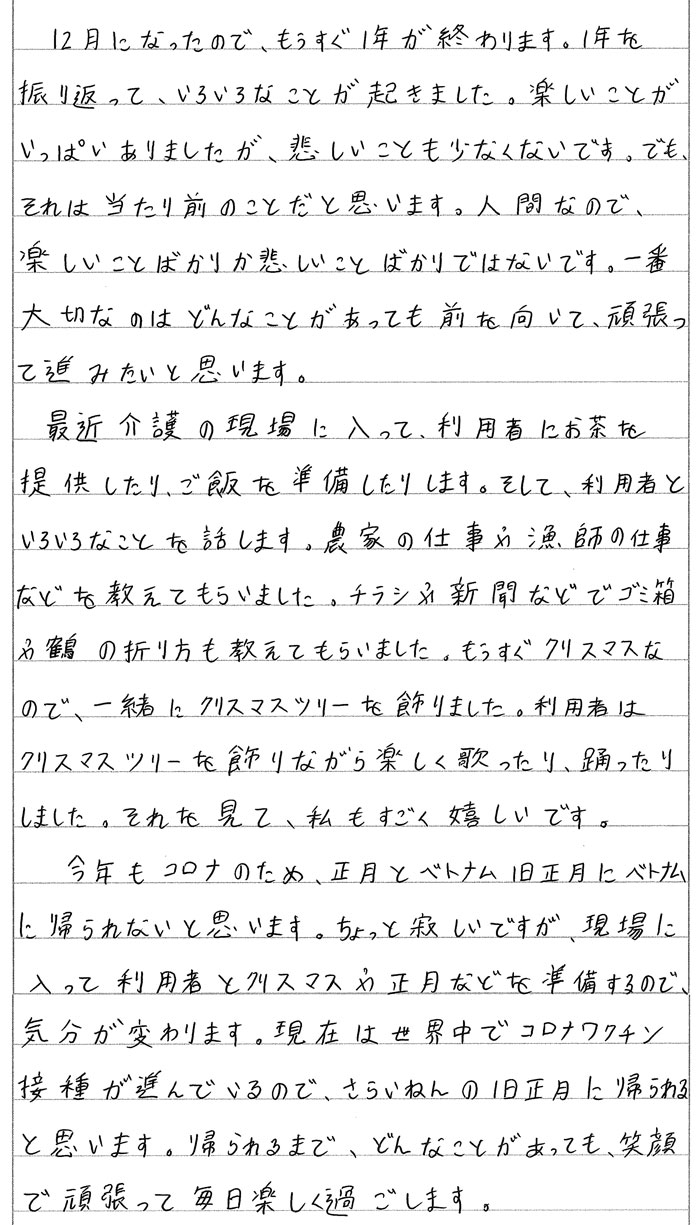 12月になったので、もうすぐ1年が終わります。1年を
振り返って、いろいろなことが起きました。楽しいことが
いっぱいありましたが、悲しいことも少なくないです。でも、
それは当たり前のことだと思います。人間なので、
楽しいことばかりか悲しいことばかりではないです。一番
大切なのはどんなことがあっても前を向いて、頑張っ
て進みたいと思います。
最近介護の現場に入って、利用者にお茶を
提供したり、ご飯を準備したりします。そして、利用者と
いろいろなことを話します。農家の仕事や漁師の仕事
などを教えてもらいました。チラシや新聞などでゴミ箱
や鶴の折り方も教えてもらいました。もうすぐクリスマスな
ので、一緒にクリスマスツリーを飾りました。利用者は
クリスマスツリーを飾りながら楽しく歌ったり、踊ったり
しました。それを見て、私もすごく嬉しいです。
今年もコロナのため、正月とベトナム旧正月にベトナム
に帰られないと思います。ちょっと寂しいですが、現場に
入って利用者とクリスマスや正月などを準備するので、
気分が変わります。現在は世界中でコロナワクチン
接種が進んでいるので、さらいねんの旧正月に帰られる
と思います。帰られるまで、どんなことがあっても、笑顔
で頑張って毎日楽しく過ごします。